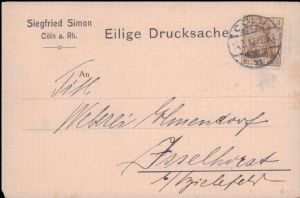 Siegfried Simon
Cöln a. Rh.
Eilige Drucksache
An
Titl
Weberei Elmendorf
Isselhorst
b/Bielefeld